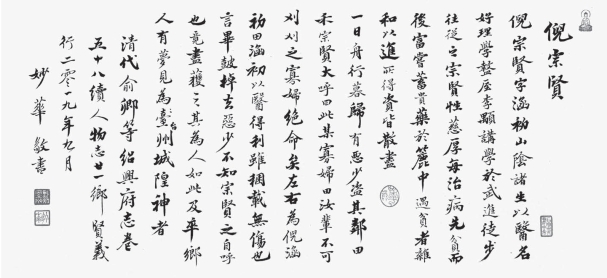 倪宗賢
倪宗賢字涵初山陰諸生以醫名
好理學盩厔李顒講學於武進徒步
往從之宗賢性慈厚每治病先貧而
後富嘗蓄貴藥於籠中遇貧者雜
和以進所得資皆散盡
一日舟行暮歸有惡少盜其鄰田
禾宗賢大呼曰此某寡婦田汝輩不可
刈刈之寡婦絕命矣左右為倪涵
初田涵初以醫得利雖稛載無傷也
言畢鼓棹去惡少不知宗賢之自呼
也竟盡獲之其為人如此及卒鄉
人有夢見為彰台州城隍神者
清代俞卿等紹興府志卷
五十八續人物志廿一鄉賢義
行二零一九年九月
妙華敬書